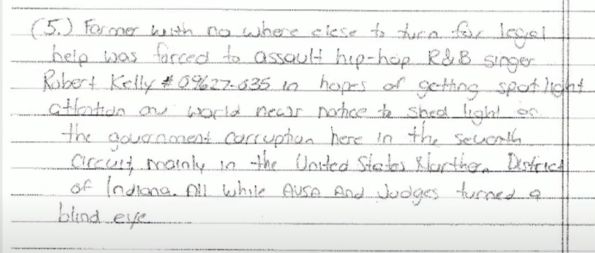 (5.) Farmer with no where else to turn for legal
help was forced to assault hip-hop R&B singer
Robert Kelly #09627-035 in hopes of getting spotlight
attention an world news notice to shed light on
the gouvernment corruption here in the seventh
circuit, mainly in the United States Northern District
of Indiana. All while AUSA And Judges turned a
blind eye.